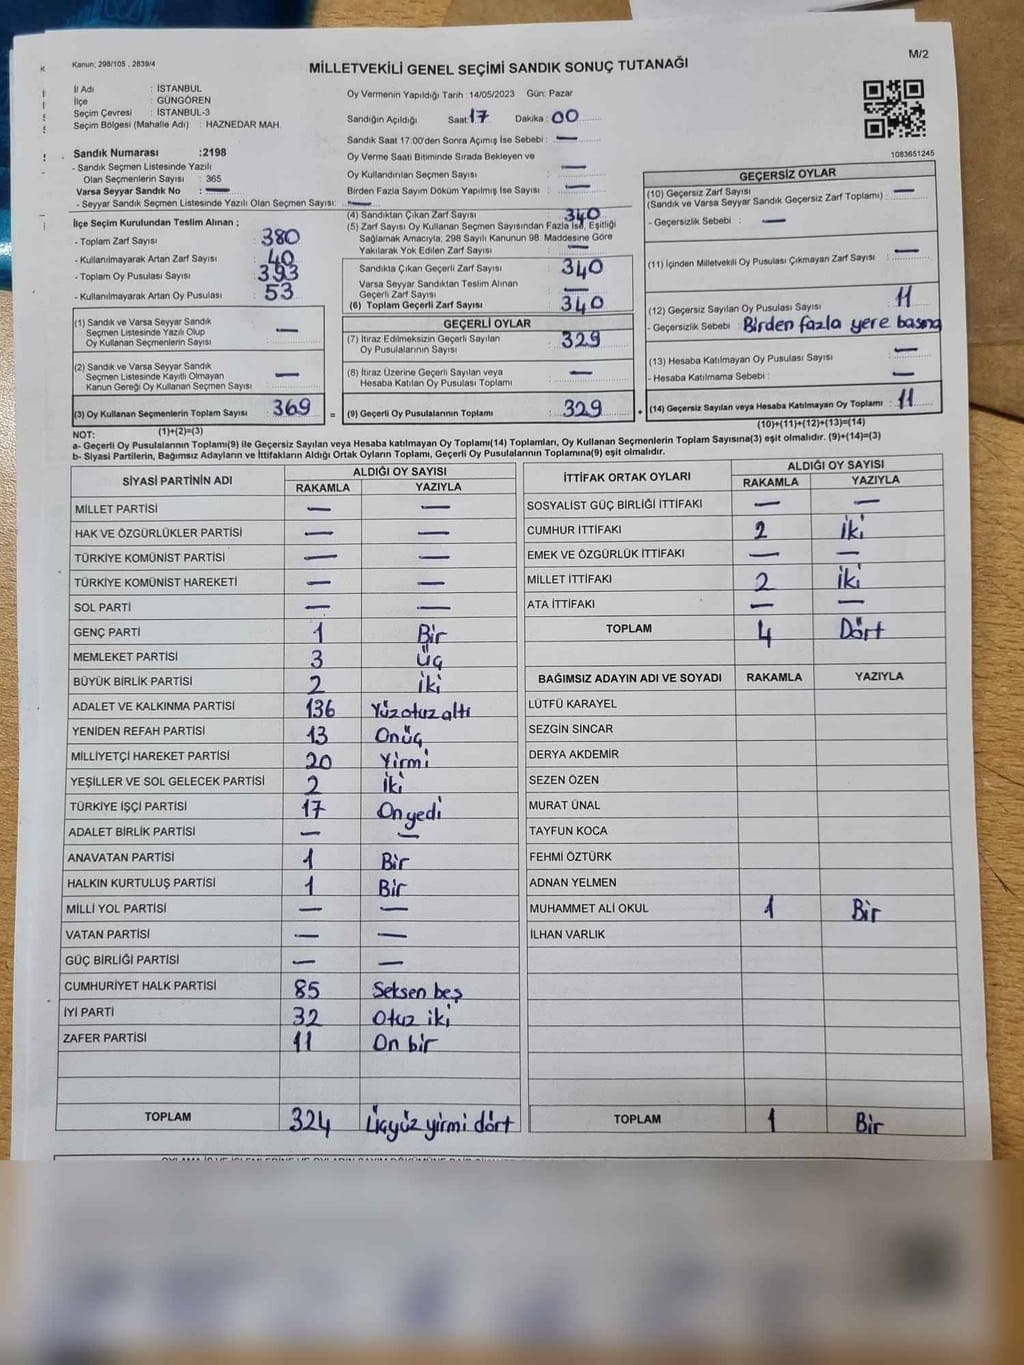 Kanun; 298/105 , 2839/4
M/2
MİLLETVEKİLİ GENEL SEÇİMİ SANDIK SONUÇ TUTANAĞI
İl Adı : İSTANBUL
İlçe : GÜNGÖREN
Seçim Çevresi : İSTANBUL-3
Seçim Bölgesi (Mahalle Adı) : HAZNEDAR MAH.
Sandık Numarası :2198
- Sandık Seçmen Listesinde Yazılı
Olan Seçmenlerin Sayısı : 365
Varsa Seyyar Sandık No : —
- Seyyar Sandık Seçmen Listesinde Yazılı Olan Seçmen Sayısı: —
Oy Vermenin Yapıldığı Tarih :14/05/2023 Gün: Pazar
Sandığın Açıldığı Saat: 17 Dakika: 00
Sandık Saat 17:00'den Sonra Açımış İse Sebebi : —
Oy Verme Saati Bitiminde Sırada Bekleyen ve
Oy Kullandırılan Seçmen Sayısı : —
Birden Fazla Sayım Döküm Yapılmış İse Sayısı : —
1083651245
İlçe Seçim Kurulundan Teslim Alınan ;
- Toplam Zarf Sayısı : 380
- Kullanılmayarak Artan Zarf Sayısı : 40
- Toplam Oy Pusulası Sayısı : 393
- Kullanılmayarak Artan Oy Pusulası : 53
(1) Sandık ve Varsa Seyyar Sandık
Seçmen Listesinde Yazılı Olup
Oy Kullanan Seçmenlerin Sayısı : —
(2) Sandık ve Varsa Seyyar Sandık
Seçmen Listesinde Kayıtlı Olmayan
Kanun Gereği Oy Kullanan Seçmen Sayısı : —
(3) Oy Kullanan Seçmenlerin Toplam Sayısı : 369
(1)+(2)=(3)
(4) Sandıktan Çıkan Zarf Sayısı : 340
(5) Zarf Sayısı Oy Kullanan Seçmen Sayısından Fazla İse, Eşitliği
Sağlamak Amacıyla; 298 Sayılı Kanunun 98. Maddesine Göre
Yakılarak Yok Edilen Zarf Sayısı : —
Sandıkta Çıkan Geçerli Zarf Sayısı : 340
Varsa Seyyar Sandıktan Teslim Alınan
Geçerli Zarf Sayısı : —
(6) Toplam Geçerli Zarf Sayısı : 340
GEÇERLİ OYLAR
(7) İtiraz Edilmeksizin Geçerli Sayılan
Oy Pusulalarının Sayısı : 329
(8) İtiraz Üzerine Geçerli Sayılan veya
Hesaba Katılan Oy Pusulası Toplamı : —
= (9) Geçerli Oy Pusulalarının Toplamı : 329
GEÇERSİZ OYLAR
(10) Geçersiz Zarf Sayısı : —
(Sandık ve Varsa Seyyar Sandık Geçersiz Zarf Toplamı)
- Geçersizlik Sebebi : —
(11) İçinden Milletvekili Oy Pusulası Çıkmayan Zarf Sayısı : —
(12) Geçersiz Sayılan Oy Pusulası Sayısı : 11
- Geçersizlik Sebebi : Birden fazla yere basma
(13) Hesaba Katılmayan Oy Pusulası Sayısı : —
- Hesaba Katılmama Sebebi : —
+ (14) Geçersiz Sayılan veya Hesaba Katılmayan Oy Toplamı : 11
(10)+(11)+(12)+(13)=(14)
NOT:
a- Geçerli Oy Pusulalarının Toplamı(9) ile Geçersiz Sayılan veya Hesaba katılmayan Oy Toplamı(14) Toplamları, Oy Kullanan Seçmenlerin Toplam Sayısına(3) eşit olmalıdır. (9)+(14)=(3)
b- Siyasi Partilerin, Bağımsız Adayların ve İttifakların Aldığı Ortak Oyların Toplamı, Geçerli Oy Pusulalarının Toplamına(9) eşit olmalıdır.
SİYASİ PARTİNİN ADI ALDIĞI OY SAYISI
RAKAMLA YAZIYLA
MİLLET PARTİSİ — —
HAK VE ÖZGÜRLÜKLER PARTİSİ — —
TÜRKİYE KOMÜNİST PARTİSİ — —
TÜRKİYE KOMÜNİST HAREKETİ — —
SOL PARTİ — —
GENÇ PARTİ 1 Bir
MEMLEKET PARTİSİ 3 Üç
BÜYÜK BİRLİK PARTİSİ 2 İki
ADALET VE KALKINMA PARTİSİ 136 Yüzotuzaltı
YENİDEN REFAH PARTİSİ 13 Onüç
MİLLİYETÇİ HAREKET PARTİSİ 20 Yirmi
YEŞİLLER VE SOL GELECEK PARTİSİ 2 İki
TÜRKİYE İŞÇİ PARTİSİ 17 Onyedi
ADALET BİRLİK PARTİSİ — —
ANAVATAN PARTİSİ 1 Bir
HALKIN KURTULUŞ PARTİSİ 1 Bir
MİLLİ YOL PARTİSİ — —
VATAN PARTİSİ — —
GÜÇ BİRLİĞİ PARTİSİ — —
CUMHURİYET HALK PARTİSİ 85 Seksen beş
İYİ PARTİ 32 Otuz iki
ZAFER PARTİSİ 11 On bir
TOPLAM 324 Üçyüz yirmi dört
İTTİFAK ORTAK OYLARI ALDIĞI OY SAYISI
RAKAMLA YAZIYLA
SOSYALİST GÜÇ BİRLİĞİ İTTİFAKI — —
CUMHUR İTTİFAKI 2 İki
EMEK VE ÖZGÜRLÜK İTTİFAKI — —
MİLLET İTTİFAKI 2 İki
ATA İTTİFAKI — —
TOPLAM 4 Dört
BAĞIMSIZ ADAYIN ADI VE SOYADI RAKAMLA YAZIYLA
LÜTFÜ KARAYEL
SEZGİN SİNCAR
DERYA AKDEMİR
SEZEN ÖZEN
MURAT ÜNAL
TAYFUN KOCA
FEHMİ ÖZTÜRK
ADNAN YELMEN
MUHAMMET ALİ OKUL 1 Bir
İLHAN VARLIK
TOPLAM 1 Bir